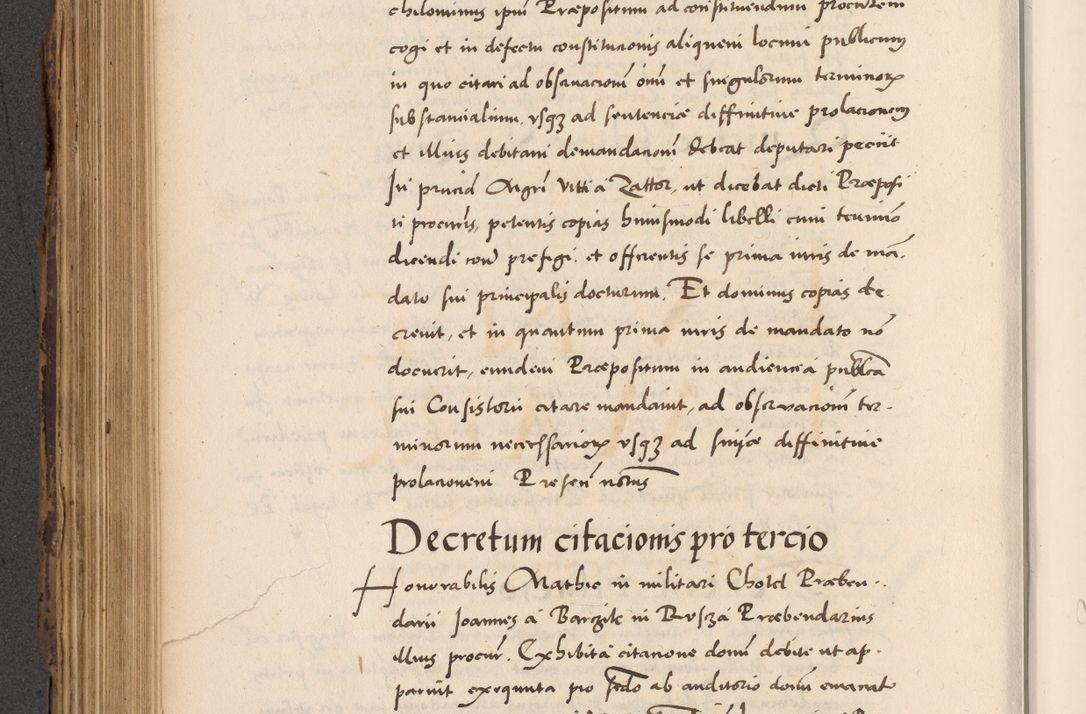 chilominus ipm̃ Præpositum ad constituendum procũrem
cogi et in defectu constitucionis aliquem locum publicum
in quo citari ad obseruacionẽ om̃ et singulorum terminorꝝ
substancialium, vsqꝫ ad sentenciæ diffinitiue prolacionem
et illius debitam demandacionẽ debeat deputari peciit
In pñcia Mgrĩ Vitti a Zattor, ut dicebat dicti Præposi
ti procuris, petentis copias huiusmodi libelli cum termino
dicendi con̄ prefigi. et offerentis se prima iuris de mã.
dato sui principalis docturum. Et dominus copias de.
creuit, et in quantum prima iuris de mandato nõ
docuerit, eundem Præpositum in audiencia publica
sui Consistorii citare mandauit, ad obseruacionẽ ter.
minorum necessariorꝝ vsqꝫ ad sñiæ diffinitiue
prolacionem Presen̄ notus
Decretum citacionis pro tercio
Honorabilis Mathie in militari Chotel Præben.
darii Joannes a Barczile in Rusza Præbendarius
illius procur̃. Exhibita citacione domĩ debite ut ap.
paruit exequuta pro sc̃do ab auditorio domĩ emanat